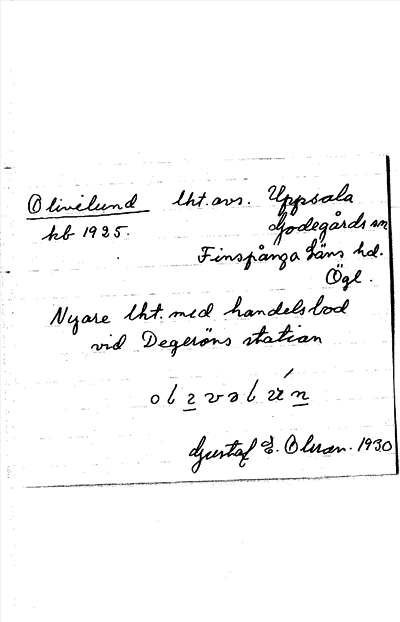 Olivelund lht. avs. Uppsala
kb 1925. Godegårds sn
Finspånga läns hd.
Ögl.
Nyare lht. med handelsbod
vid Degeröns station
Gustaf E. Olsson. 1930